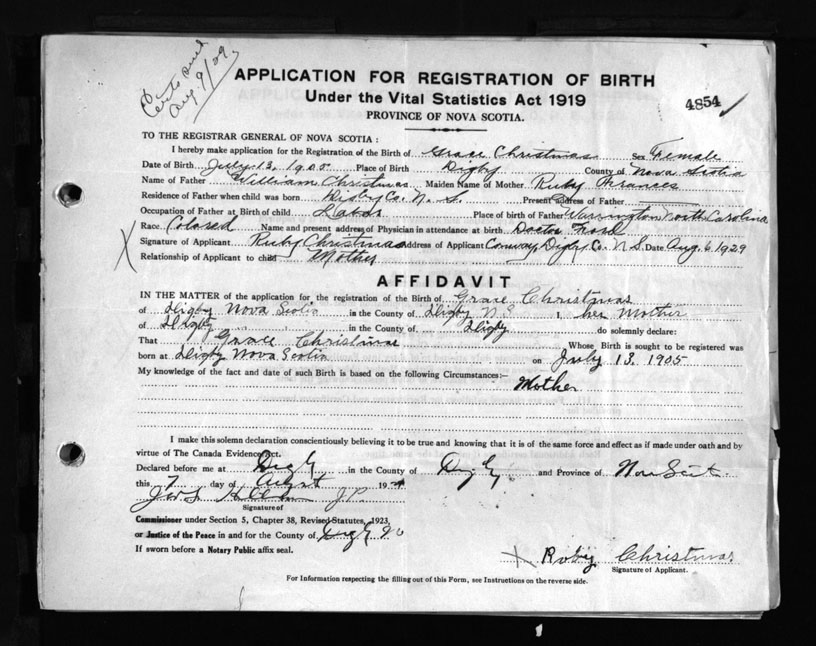 Aug. 9/29.
APPLICATION FOR REGISTRATION OF BIRTH
Under the Vital Statistics Act 1919
PROVINCE OF NOVA SCOTIA.
4854
TO THE REGISTRAR GENERAL OF NOVA SCOTIA:
I hereby make application for the Registration of the Birth of Grace Christmas Sex Female
Date of Birth July 13, 1905 Place of Birth Digby County of Nova Scotia
Name of Father William Christmas Maiden Name of Mother Ruby Frances
Residence of Father when child was born Digby Co. N. S. Present address of Father
Occupation of Father at Birth of child Labor Place of Birth of Father Warrington North Carolina
Race Colored Name and present address of Physician in attendance at birth Doctor
Signature of Applicant Ruby Christmas Address of Applicant Conway, Digby Co. N S. Date Aug. 6, 1929
Relationship of Applicant to child Mother
AFFIDAVIT
IN THE MATTER of the application for the registration of the Birth of Grace Christmas
of Digby Nova Scotia in the County of Digby N S I, her Mother
of Digby in the County of Digby do solemnly declare:
That Grace Christmas Whose Birth is sought to be registered was
born at Digby Nova Scotia on July 13, 1905
My knowledge of the fact and date of such Birth is based on the following Circumstances:—
Mother
I make this solemn declaration conscientiously believing it to be true and knowing that it is of the same force and effect as if made under oath and by
virtue of The Canada Evidence Act.
Declared before me at Digby in the County of Digby and Province of Nova Scot
this 7 day of August 19
J.P.
Signature of
Commissioner under Section 5, Chapter 38, Revised Statutes, 1923,
or Justice of the Peace in and for the County of Digby
If sworn before a Notary Public affix seal.
X Ruby Christmas
Signature of Applicant.
For Information respecting the filling out of this Form, see Instructions on the reverse side.